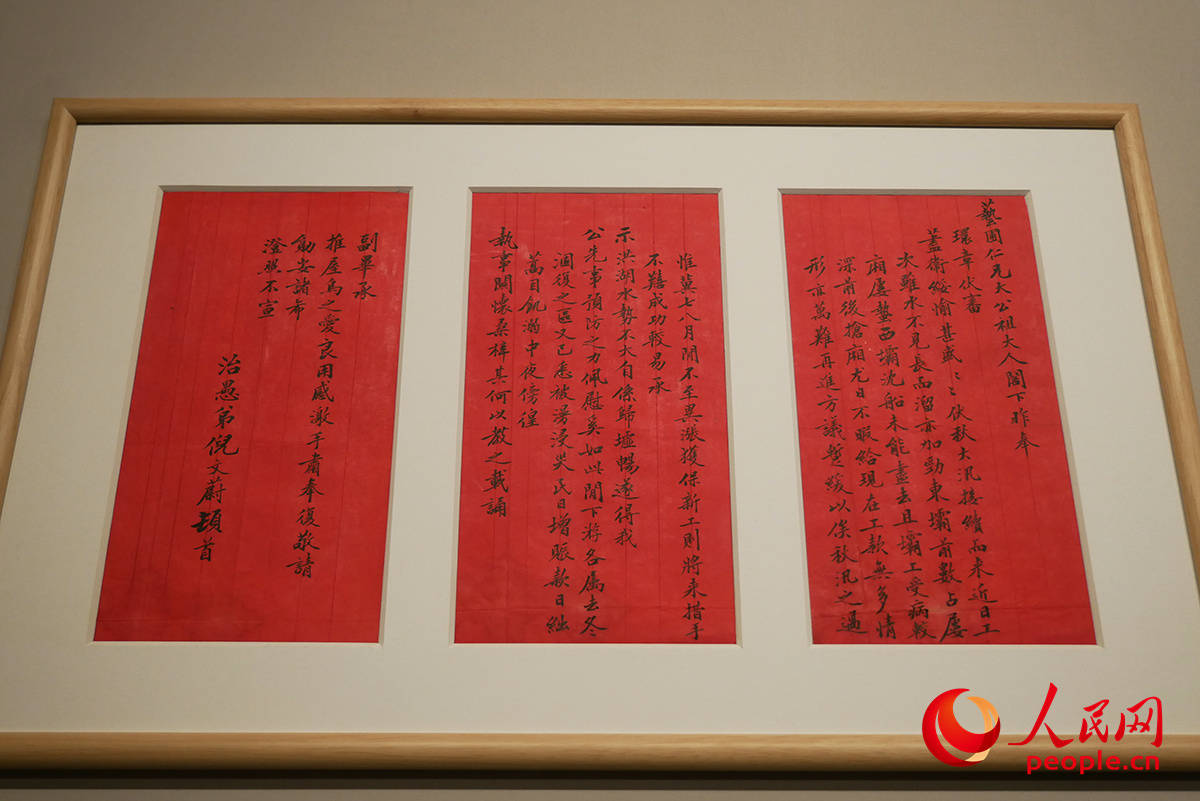 藝圃仁兄大公祖大人閣下昨奉
環章伏審
藎衛綏愉甚盛〻伏秋大汛接續而來近日工
次雖水不見長而溜亦加勁東壩前數占屢
廂屢蟄西壩沈船未能盡去且壩工受病較
深前後搶廂尤日不暇給現在工款無多情
形亦萬難再進方議暫緩以俟秋汛之過
惟冀七八月間不至異漲獲保新工則將來措手
不難成功較易承
示洪湖水勢不大自係歸墟暢遂得我
公先事預防之力佩慰奚如此間下游各屬去冬
涸復之區又已悉被漫浸災民日增賑款日絀
蒿目飢溺中夜傍徨
執事關懷桑梓其何以教之載誦
副畢承
推屋烏之愛良用感激手肅奉復敬請
勛安諸希
澄照不宣
治愚弟倪文蔚頓首
人民网
people.cn